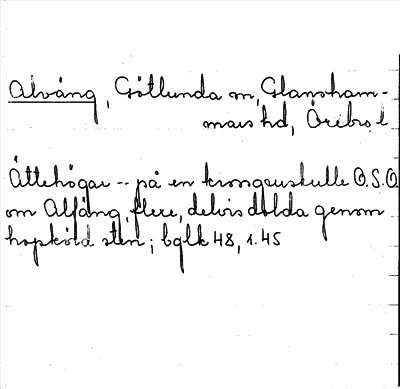 Alväng, Götlunda sn, Glansham-
mars hd, Örebro l
Ättehögar -- på en krongruskulle O.S.O.
om Alfäng, flere, delvis dolda genom
hopkörd sten; bglk 48, s. 45